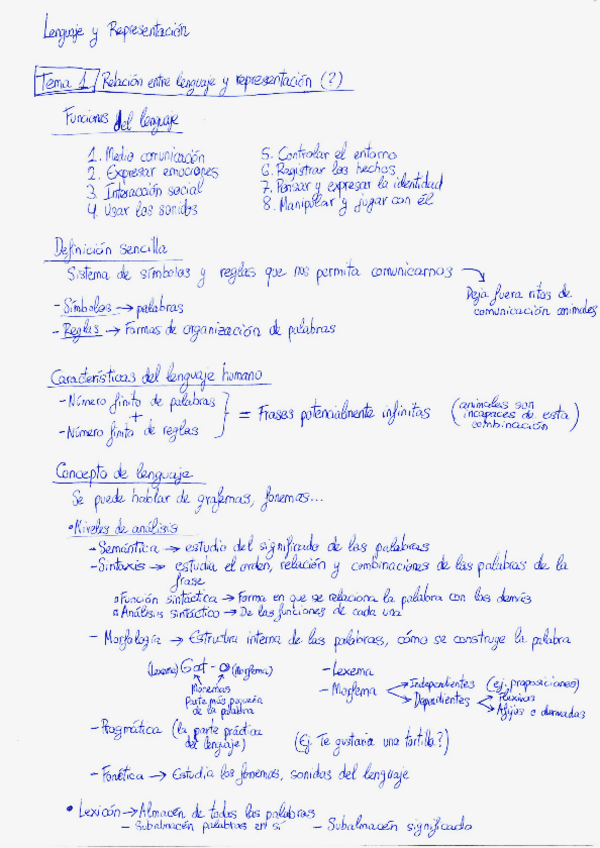 Lenguaje y Representación
Tema 1 Relación entre lenguaje y representación (?)
Funciones del lenguaje
1. Medio comunicación
2. Expresar emociones
3. Interacción social
4. Usar los sonidos
5. Controlar el entorno
6. Registrar los hechos
7. Pensar y expresar la identidad
8. Manipular y jugar con él
Definición sencilla
Sistema de símbolos y reglas que nos permita comunicarnos →
Deja fuera ritos de
comunicación animales
- Símbolos → palabras
- Reglas → Formas de organización de palabras
Características del lenguaje humano
- Número finito de palabras
+
- Número finito de reglas
} = Frases potencialmente infinitas
(animales son
incapaces de esta
combinación)
Concepto de lenguaje
Se puede hablar de grafemas, fonemas...
• Niveles de análisis
- Semántica → estudio del significado de las palabras
- Sintaxis → estudia el orden, relación y combinaciones de las palabras de la
frase
▫ Función sintáctica → Forma en que se relaciona la palabra con las demás
▫ Análisis sintáctico → De las funciones de cada una
- Morfología → Estructura interna de las palabras, cómo se construye la palabra
(Lexema) Gat - o (Morfema)
Monemas
Parte más pequeña
de la palabra
- Lexema
- Morfema
Independientes (ej. preposiciones)
Dependientes
Flexivos
Afijos o derivadas
- Pragmática (la parte práctica
del lenguaje)
(Ej. Te gustaría una tortilla?)
- Fonética → Estudia los fonemas, sonidos del lenguaje
• Lexicón → Almacén de todas las palabras
- Subalmacén palabras en sí
- Subalmacén significado